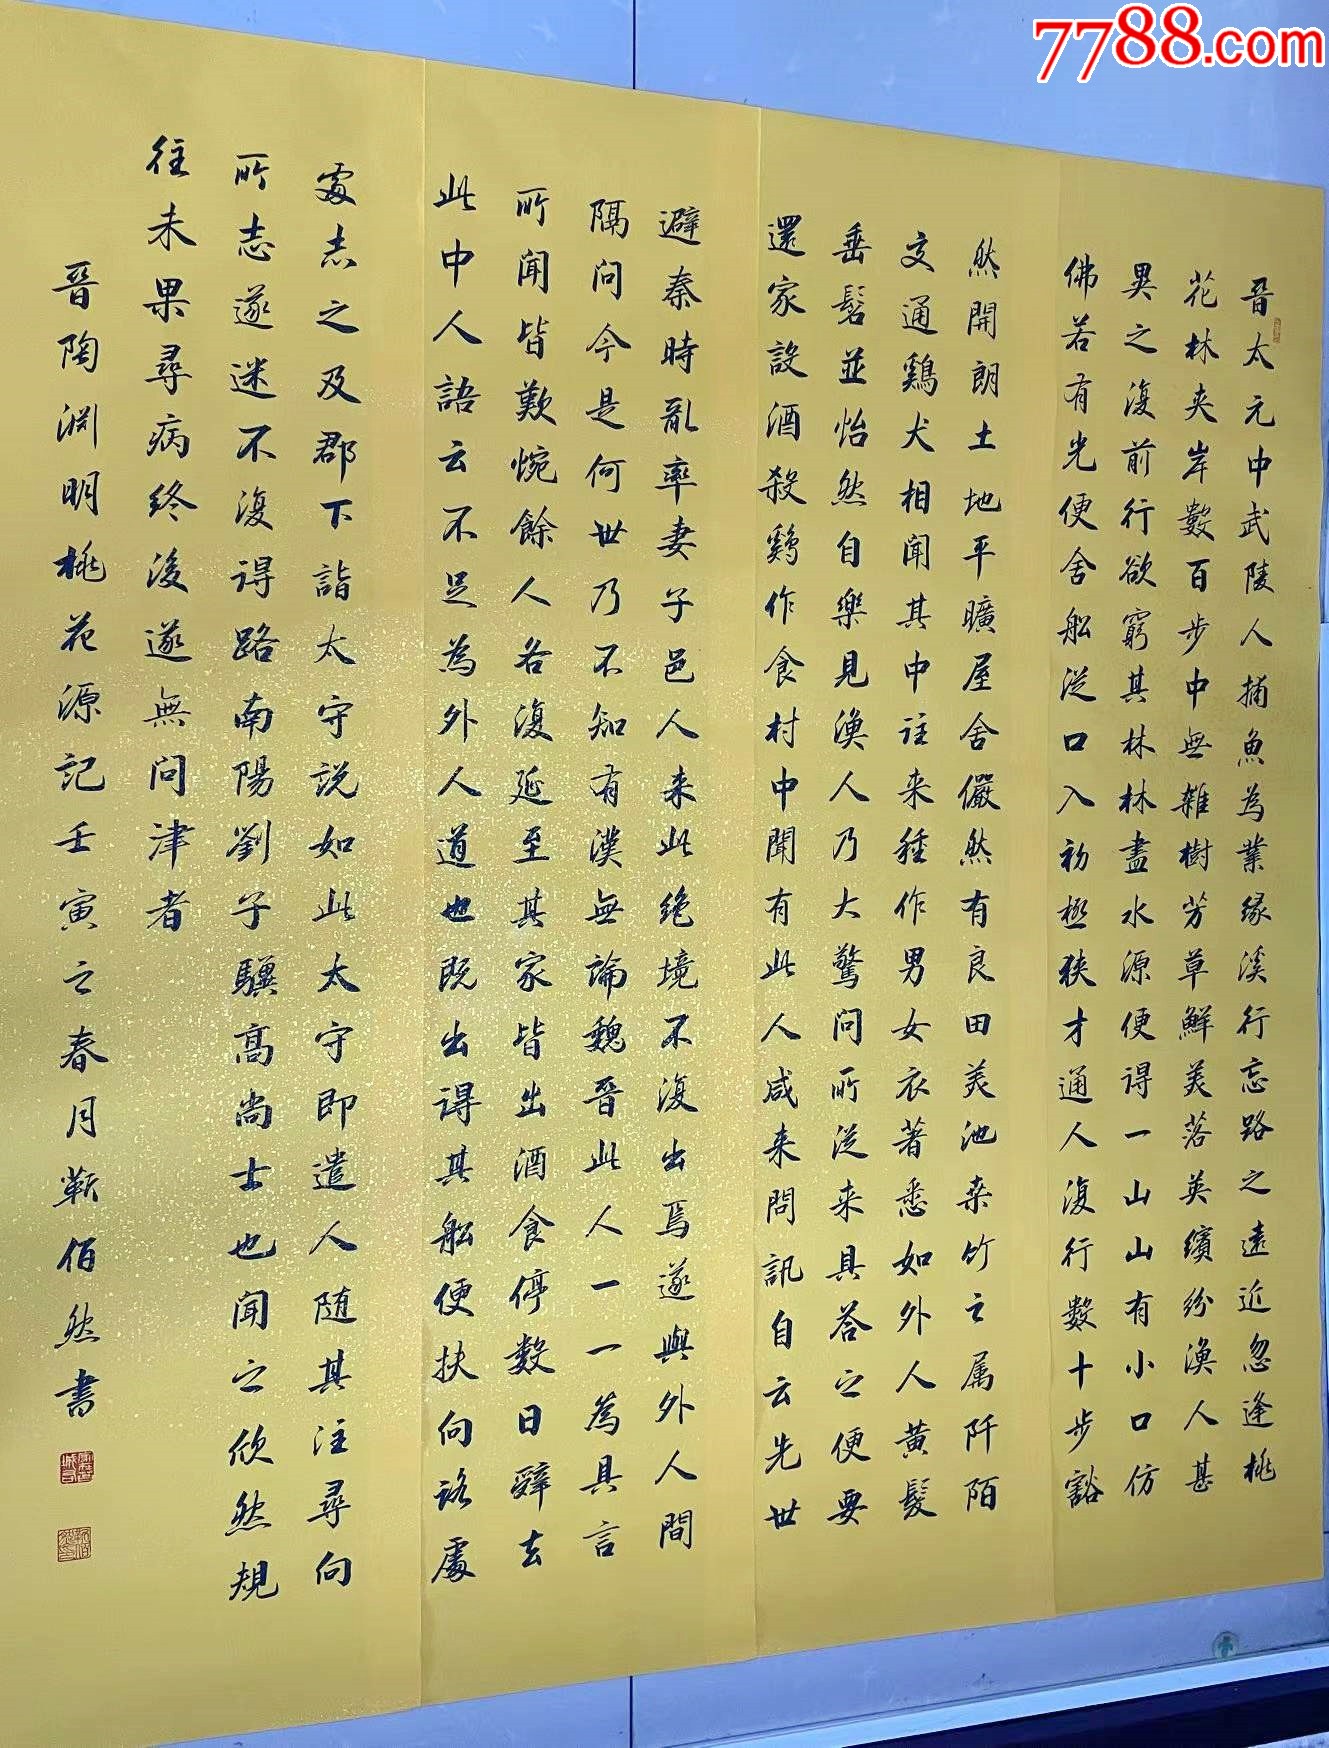 7788.com
晉太元中武陵人捕魚為業緣溪行忘路之遠近忽逢桃
花林夾岸數百步中無雜樹芳草鮮美落英繽紛漁人甚
異之復前行欲窮其林林盡水源便得一山山有小口仿
佛若有光便舍船從口入初極狹才通人復行數十步豁
然開朗土地平曠屋舍儼然有良田美池桑竹之属阡陌
交通鷄犬相聞其中往来種作男女衣著悉如外人黃髮
垂髫並怡然自樂見漁人乃大驚問所從来具答之便要
還家設酒殺鷄作食村中聞有此人咸来問訊自云先世
避秦時亂率妻子邑人来此絕境不復出焉遂與外人間
隔問今是何世乃不知有漢無論魏晉此人一一為具言
所聞皆歎惋餘人各復延至其家皆出酒食停數日辭去
此中人語云不足為外人道也既出得其船便扶向路處
處志之及郡下詣太守説如此太守即遣人随其往尋向
所志遂迷不復得路南陽劉子驥高尚士也聞之欣然規
往未果尋病終後遂無問津者
晉陶淵明桃花源記壬寅之春月靳佰然書